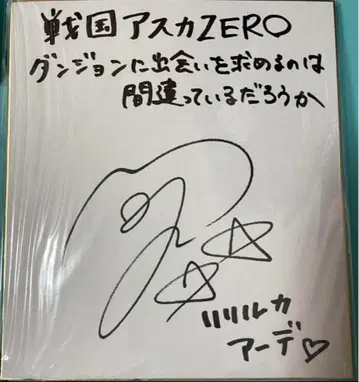 戦国アスカZERO
ダンジョンに出会いを求めるのは
間違っているだろうか
リリルカ
アーデ♡